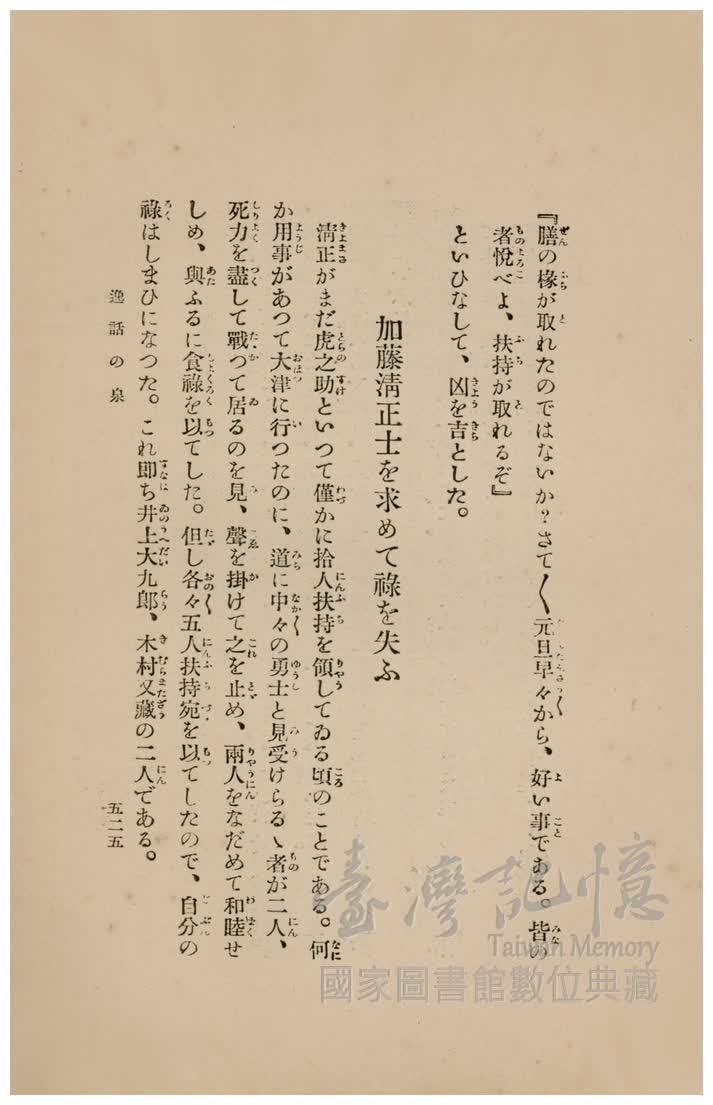 『膳の椽が取れたのではないか？さて〱元旦早々から、好い事である。皆の
者悅べよ、扶持が取れるぞ』
といひなして、凶を吉とした。
加藤淸正士を求めて祿を失ふ
淸正がまだ虎之助といつて僅かに拾人扶持を領してゐる頃のことである。何
か用事があつて大津に行つたのに、道に中々の勇士と見受けらるゝ者が二人、
死力を盡して戰つて居るのを見、聲を掛けて之を止め、兩人をなだめて和睦せ
しめ、與ふるに食祿を以てした。但し各々五人扶持宛を以てしたので、自分の
祿はしまひになつた。これ卽ち井上大九郞、木村又藏の二人である。
逸話の泉
五二五
臺灣記憶
Taiwan Memory
國家圖書館數位典藏